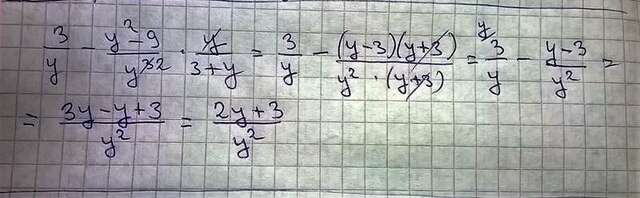 3/y − (y² − 9)/y³² · y/(3 + y) = 3/y − ((y − 3)(y + 3))/(y² · (y + 3)) = ʸ3/y − (y − 3)/y² =
= (3y − y + 3)/y² = (2y + 3)/y²